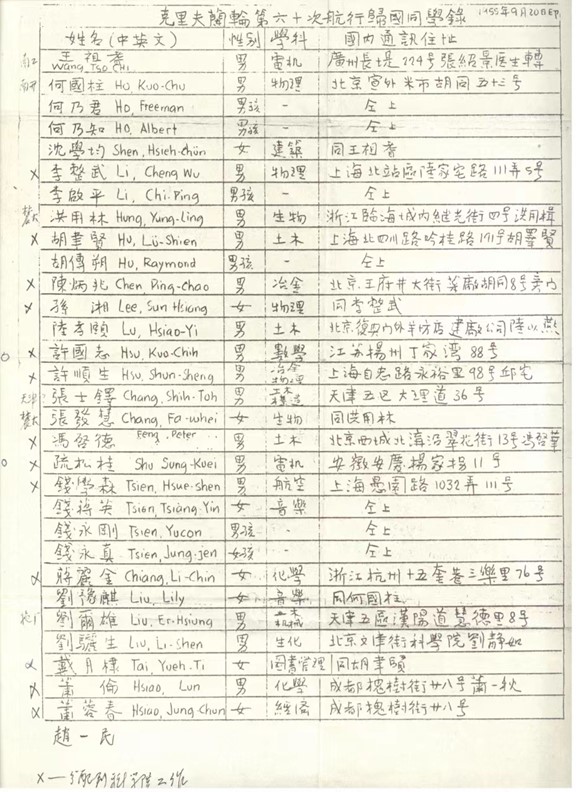 克里夫蘭輪第六十次航行歸國同學錄 1955年9月20日EP
姓名(中英文) 性別 學科 國内通訊住址
王祖耆 Wang, Tso Chi 男 電机 廣州長堤224号張紹景医生轉
何國柱 Ho Kuo-Chu 男 物理 北京宣外米市胡同五十三号
何乃君 Ho, Freeman 男孩 - 仝上
何乃知 Ho, Albert 男孩 - 仝上
沈學均 Shen, Hsieh-chün 女 建築 同王祖耆
x 李整武 Li, Cheng Wu 男 物理 上海北站區陸家宅路111弄5号
李啟平 Li, Chi-Ping 男孩 - 仝上
洪用林 Hung, Yung-ling 男 生物 浙江臨海城内継光街四号洪用楫
x 胡聿賢 Hu, Lü-Shien 男 土木 上海北四川路
胡傳朔 Hu, Raymond 男孩 - 仝上
x 陳炳兆 Chen Ping-chao 男 冶金 北京.王府井大街 胡同8号
x 孫湘 Lee, Sun Hsiang 女 物理 同李整武
陸孝頤 Lu, Hsiao-Yi 男 土木 北京復興门外羊坊店建
o x 許國志 Hsu, Kuo-Chih 男 數學 江苏揚州丁家湾88号
x 許順生 Hsu, Shun-Sheng 男 冶金物理 上海自忠路永裕里98号邱宅
張士鐸 Chang, Shih-Toh 男 土木 天津五区大理道36号
張發慧 Chang, Fa-whei 女 生物 同洪用林
x 馮啓德 Feng, Peter 男 土木 北京西城北溝沿翠花街13号馮啓華
o x 疏松桂 Shu Sung-Kuei 男 電机 安徽安慶楊家拐11号
x 錢學森 Tsien, Hsue-shen 男 航空 上海愚園路1032弄111号
錢蔣英 Tsien, Tsiang Yin 女 音樂 仝上
錢永剛 Tsien, Yucon 男孩 - 仝上
錢永真 Tsien, Jung-jen 女孩 - 仝上
x 蔣麗金 Chiang, Li-Chin 女 化學 浙江杭州十五奎巷三樂里76号
劉豫麒 Liu, Lily 女 音樂 同何國柱
劉爾雄 Liu, Er-Hsiung 男 机械 天津五區漢陽道慧德里8号
劉驪生 Liu, Li-Shen 男 生化 北京文津街科學院劉静如
x 戴月棣 Tai, Yueh-Ti 女 圖書管理 同胡聿賢
x 蕭倫 Hsiao, Lun 男 化學 成都槐樹街廿八号蕭一秋
x 蕭蓉春 Hsiao, Jung-Chun 女 經濟 成都槐樹街廿八号
趙一民
x—分配到科學院工作